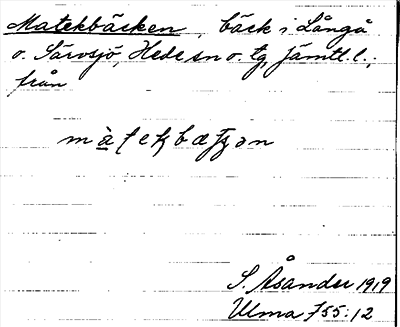 Matekbäcken, bäck i Långå
o. Särvsjö, Hede sn o. tg, Jämtl. l.;
från
S. Åsander 1919
Ulma 755:12